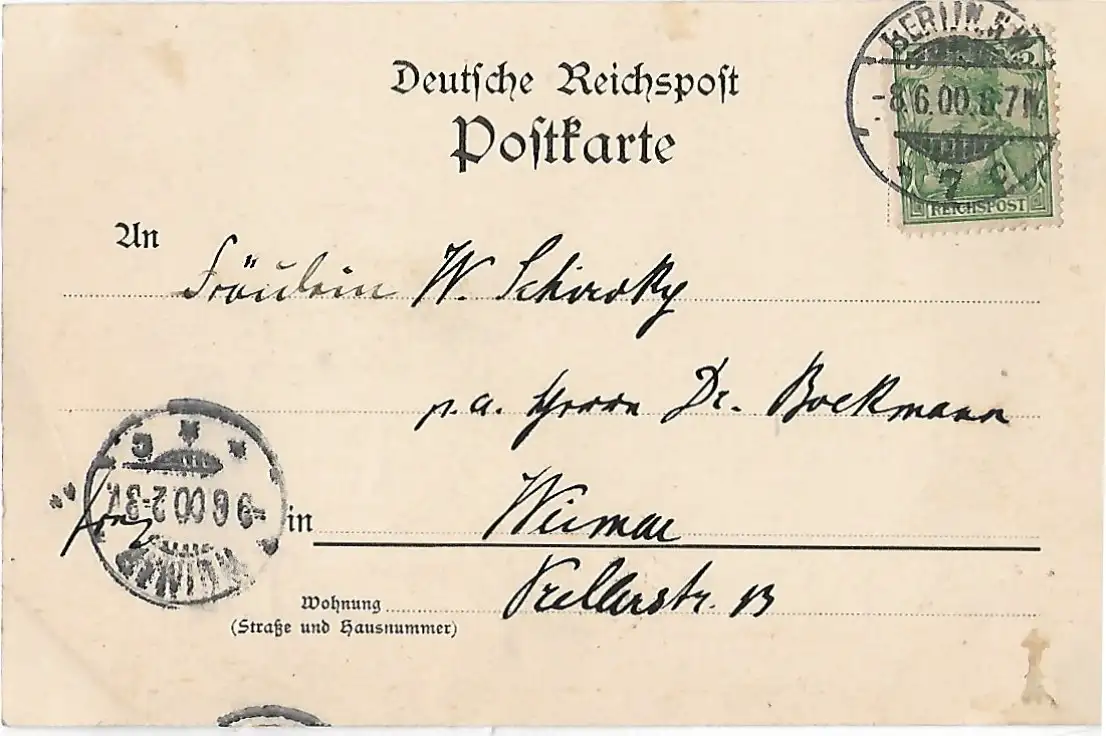 Deutsche Reichspost
Postkarte
BERLIN
-8.6.00.6-7N.
7 c.
REICHSPOST
An Fräulein W. Schiroky
p.a. Herrn Dr. Bockmann
in Weimar
Wohnung Prellerstr. 13
(Straße und Hausnummer)
WEIMAR
-9.6.00.2-3N.